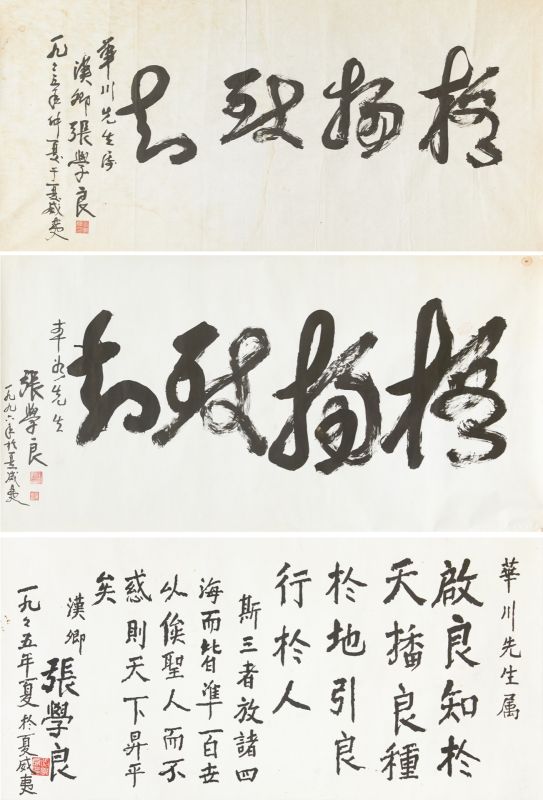 格物致知
華川先生属
漢卿張學良
一九九五年仲夏于夏威夷
格物致知
先生
張學良
一九九六年於夏威夷
華川先生属
啟良知於
天播良種
於地引良
行於人
斯三者放諸四
海而皆準百世
以俟聖人而不
惑則天下昇平
矣
漢卿
張學良
一九九五年夏於夏威夷